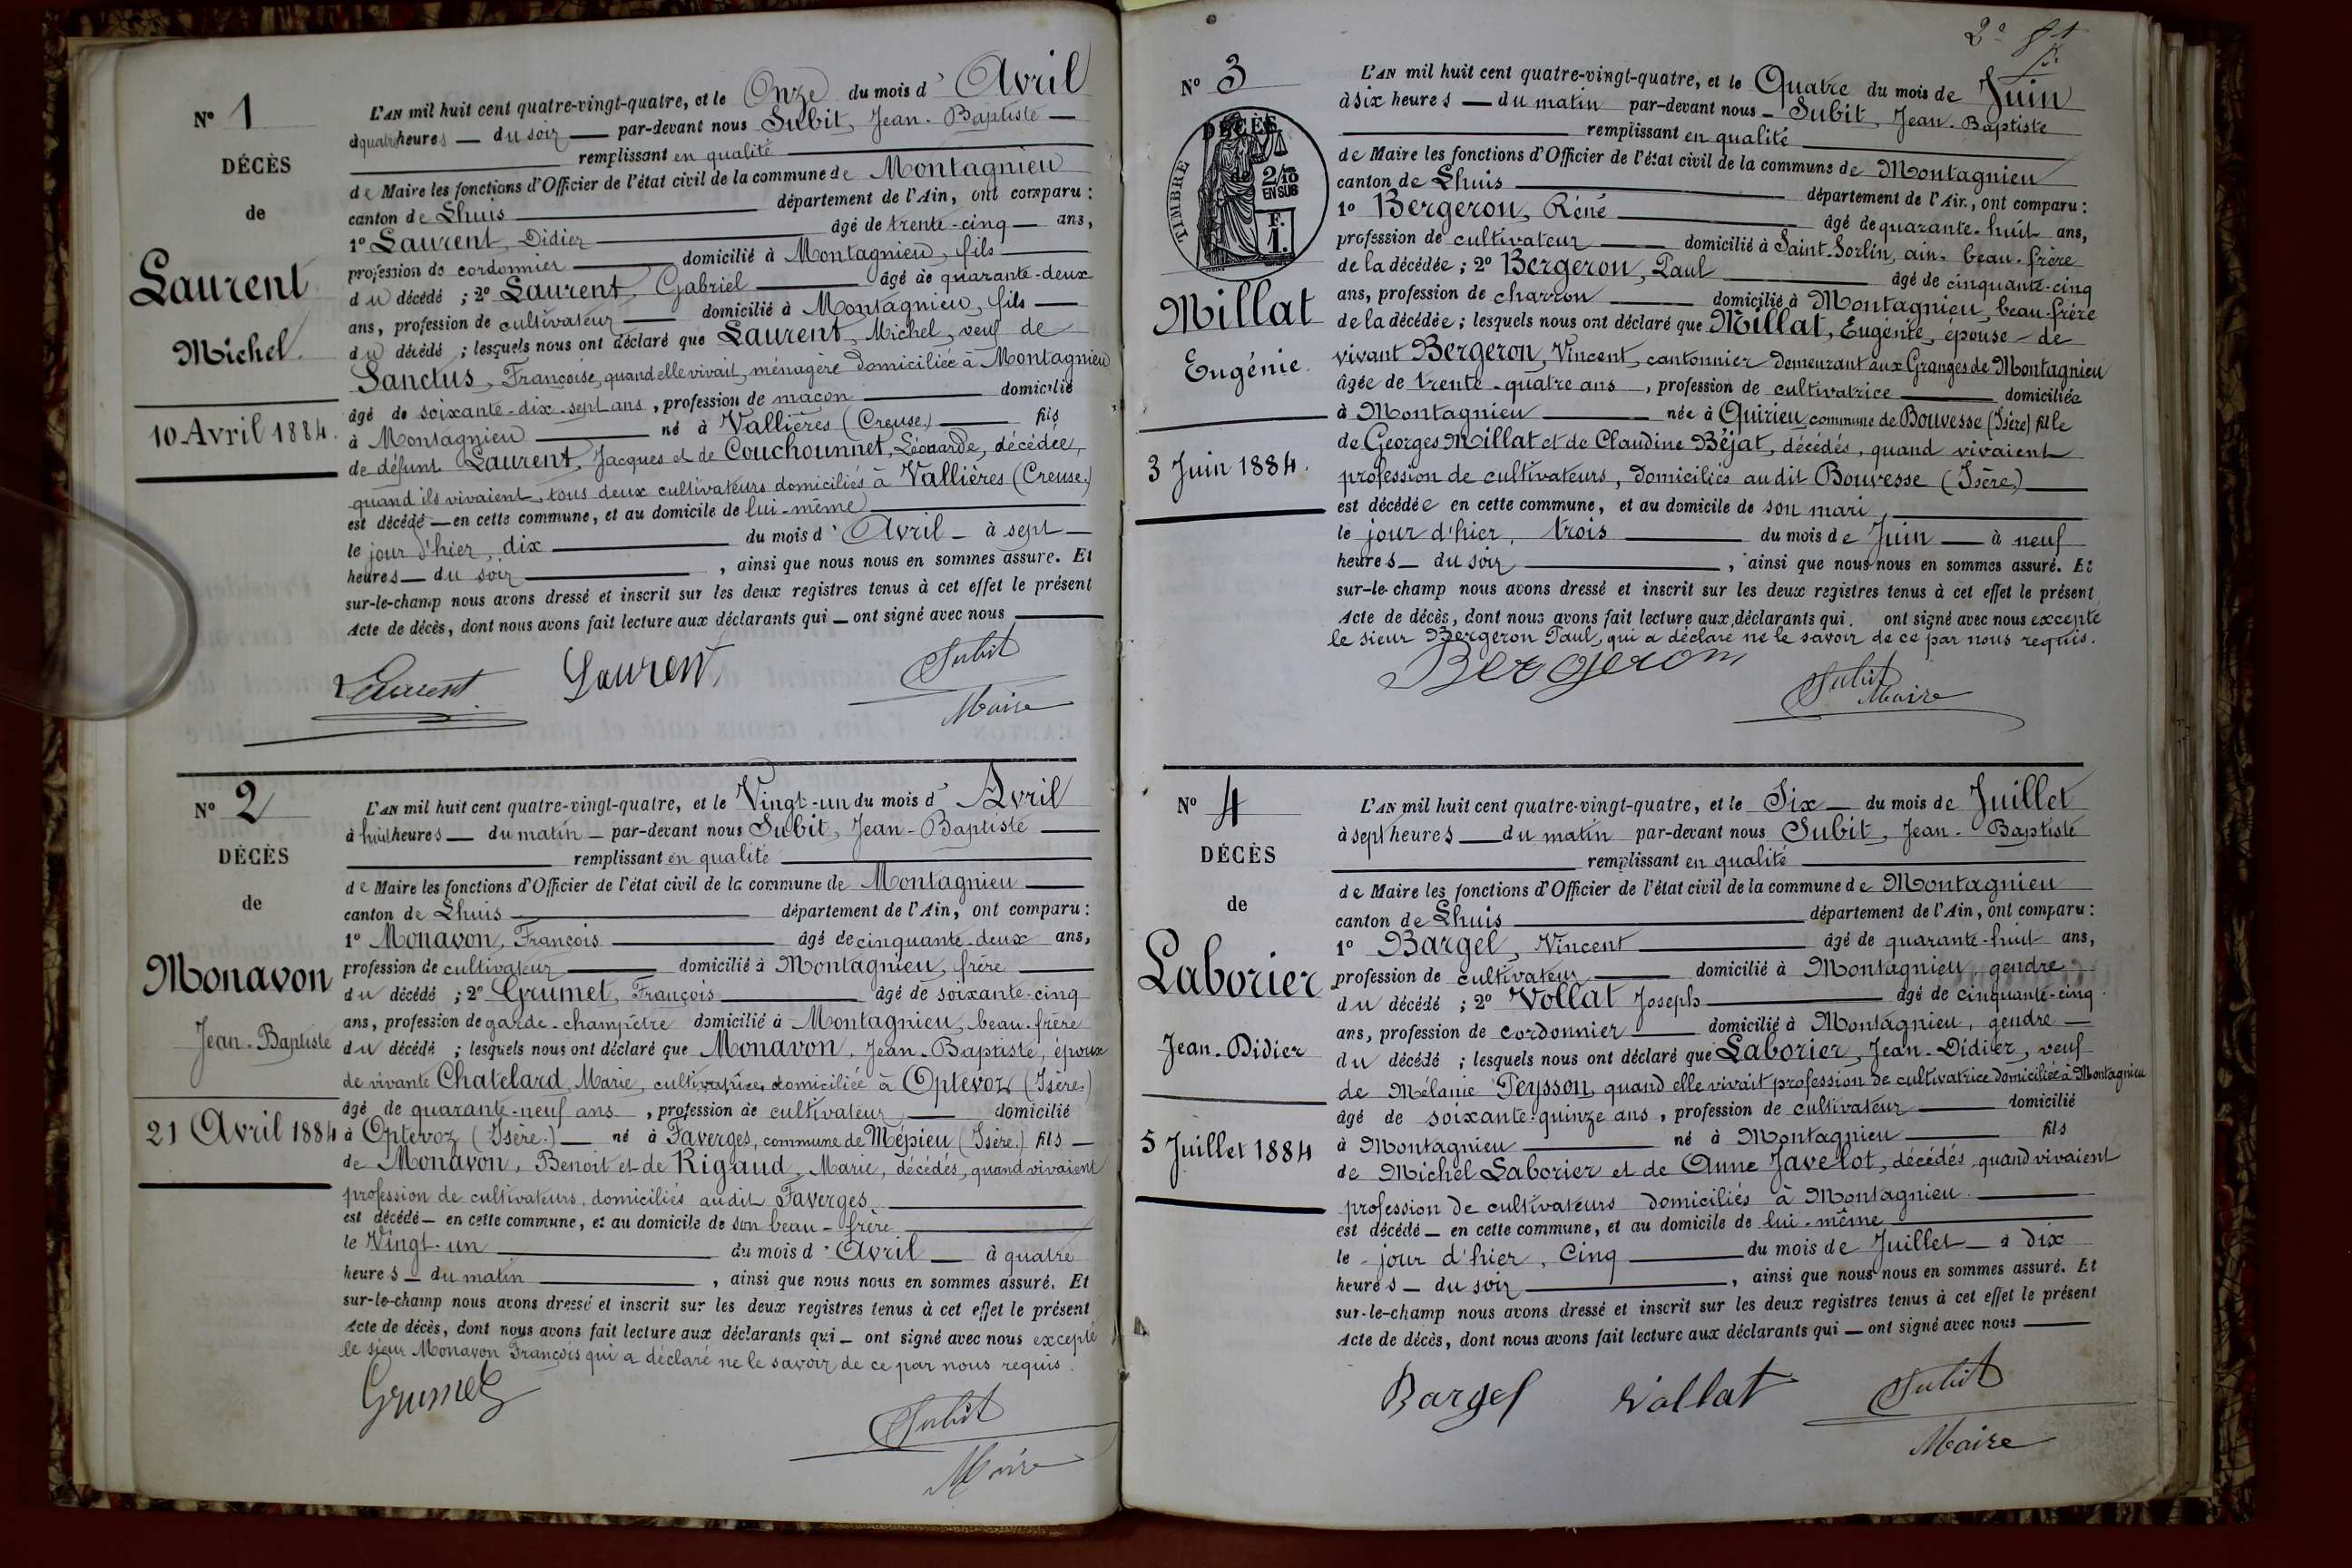 Nº 1
DÉCÈS
de
Laurent
Michel.
10 Avril 1884.
L'AN mil huit cent quatre-vingt-quatre, et le Onze du mois d' Avril
à quatre heures — du soir — par-devant nous Subit, Jean-Baptiste —
remplissant en qualité
de Maire les fonctions d'Officier de l'état civil de la commune de Montagnieu
canton de Lhuis département de l'Ain, ont comparu :
1º Laurent, Didier âgé de trente-cinq — ans,
profession de cordonnier domicilié à Montagnieu, fils
du décédé ; 2º Laurent, Gabriel âgé de quarante-deux
ans, profession de cultivateur domicilié à Montagnieu, fils —
du décédé ; lesquels nous ont déclaré que Laurent, Michel, veuf de
Sanctus, Françoise, quand elle vivait, ménagère domiciliée à Montagnieu
âgé de soixante-dix-sept ans, profession de maçon domicilié
à Montagnieu né à Vallières (Creuse) fils
de défunt Laurent, Jacques et de Couchounnet, Léonarde, décédée,
quand ils vivaient, tous deux cultivateurs domiciliés à Vallières (Creuse.)
est décédé — en cette commune, et au domicile de lui-même
le jour d'hier, dix du mois d' Avril — à sept —
heures — du soir , ainsi que nous nous en sommes assuré. Et
sur-le-champ nous avons dressé et inscrit sur les deux registres tenus à cet effet le présent
Acte de décès, dont nous avons fait lecture aux déclarants qui — ont signé avec nous
Laurent Laurent Subit
Maire
Nº 2
DÉCÈS
de
Monavon
Jean-Baptiste
21 Avril 1884
L'AN mil huit cent quatre-vingt-quatre, et le Vingt-un du mois d' Avril
à huit heures — du matin — par-devant nous Subit, Jean-Baptiste
remplissant en qualité
de Maire les fonctions d'Officier de l'état civil de la commune de Montagnieu
canton de Lhuis département de l'Ain, ont comparu :
1º Monavon, François âgé de cinquante-deux ans,
profession de cultivateur domicilié à Montagnieu, frère
du décédé ; 2º Grumet, François âgé de soixante-cinq
ans, profession de garde-champêtre domicilié à Montagnieu, beau-frère
du décédé ; lesquels nous ont déclaré que Monavon, Jean-Baptiste, époux
de vivante Chatelard, Marie, cultivatrice, domiciliée à Optevoz (Isère)
âgé de quarante-neuf ans, profession de cultivateur domicilié
à Optevoz (Isère.) — né à Faverges, commune de Mépieu (Isère.) fils —
de Monavon, Benoit et de Rigaud, Marie, décédés, quand vivaient
profession de cultivateurs, domiciliés audit Faverges
est décédé — en cette commune, et au domicile de son beau-frère
le Vingt-un du mois d' Avril — à quatre
heures — du matin , ainsi que nous nous en sommes assuré. Et
sur-le-champ nous avons dressé et inscrit sur les deux registres tenus à cet effet le présent
Acte de décès, dont nous avons fait lecture aux déclarants qui — ont signé avec nous excepté
le sieur Monavon François qui a déclaré ne le savoir de ce par nous requis.
Grumet
Subit
Maire
2e
Nº 3
DÉCÈS
TIMBRE
2/10
EN SUS
F.
1.
Millat
Eugénie.
3 Juin 1884.
L'AN mil huit cent quatre-vingt-quatre, et le Quatre du mois de Juin
à six heures — du matin par-devant nous — Subit, Jean-Baptiste
remplissant en qualité
de Maire les fonctions d'Officier de l'état civil de la commune de Montagnieu
canton de Lhuis département de l'Ain, ont comparu :
1º Bergeron, Réné âgé de quarante-huit ans,
profession de cultivateur domicilié à Saint-Sorlin, ain. beau-frère
de la décédée ; 2º Bergeron, Paul âgé de cinquante-cinq
ans, profession de charron domicilié à Montagnieu, beau-frère
de la décédée ; lesquels nous ont déclaré que Millat, Eugénie, épouse de
vivant Bergeron, Vincent, cantonnier demeurant aux Granges de Montagnieu
âgée de trente-quatre ans, profession de cultivatrice domiciliée
à Montagnieu née à Quirieu, commune de Bouvesse (Isère) fille
de Georges Millat et de Claudine Béjat, décédés, quand vivaient
profession de cultivateurs, domiciliés audit Bouvesse (Isère.)
est décédée en cette commune, et au domicile de son mari,
le jour d'hier, trois du mois de Juin — à neuf
heures — du soir , ainsi que nous nous en sommes assuré. Et
sur-le-champ nous avons dressé et inscrit sur les deux registres tenus à cet effet le présent
Acte de décès, dont nous avons fait lecture aux déclarants qui ont signé avec nous excepté
le sieur Bergeron Paul, qui a déclaré ne le savoir de ce par nous requis.
Bergeron Subit
Maire
Nº 4
DÉCÈS
de
Laborier
Jean-Didier
5 Juillet 1884
L'AN mil huit cent quatre-vingt-quatre, et le Six — du mois de Juillet
à sept heures — du matin par-devant nous Subit, Jean-Baptiste
remplissant en qualité
de Maire les fonctions d'Officier de l'état civil de la commune de Montagnieu
canton de Lhuis département de l'Ain, ont comparu :
1º Bargel, Vincent âgé de quarante-huit ans,
profession de cultivateur domicilié à Montagnieu, gendre
du décédé ; 2º Vollat Joseph âgé de cinquante-cinq
ans, profession de cordonnier domicilié à Montagnieu, gendre —
du décédé ; lesquels nous ont déclaré que Laborier, Jean-Didier, veuf
de Mélanie Peysson, quand elle vivait profession de cultivatrice domiciliée à Montagnieu
âgé de soixante-quinze ans, profession de cultivateur domicilié
à Montagnieu né à Montagnieu fils
de Michel Laborier et de Anne Javelot, décédés, quand vivaient
profession de cultivateurs domiciliés à Montagnieu.
est décédé — en cette commune, et au domicile de lui-même
le — jour d'hier, cinq du mois de Juillet — à dix
heures — du soir , ainsi que nous nous en sommes assuré. Et
sur-le-champ nous avons dressé et inscrit sur les deux registres tenus à cet effet le présent
Acte de décès, dont nous avons fait lecture aux déclarants qui — ont signé avec nous
Bargel Vollat Subit
Maire